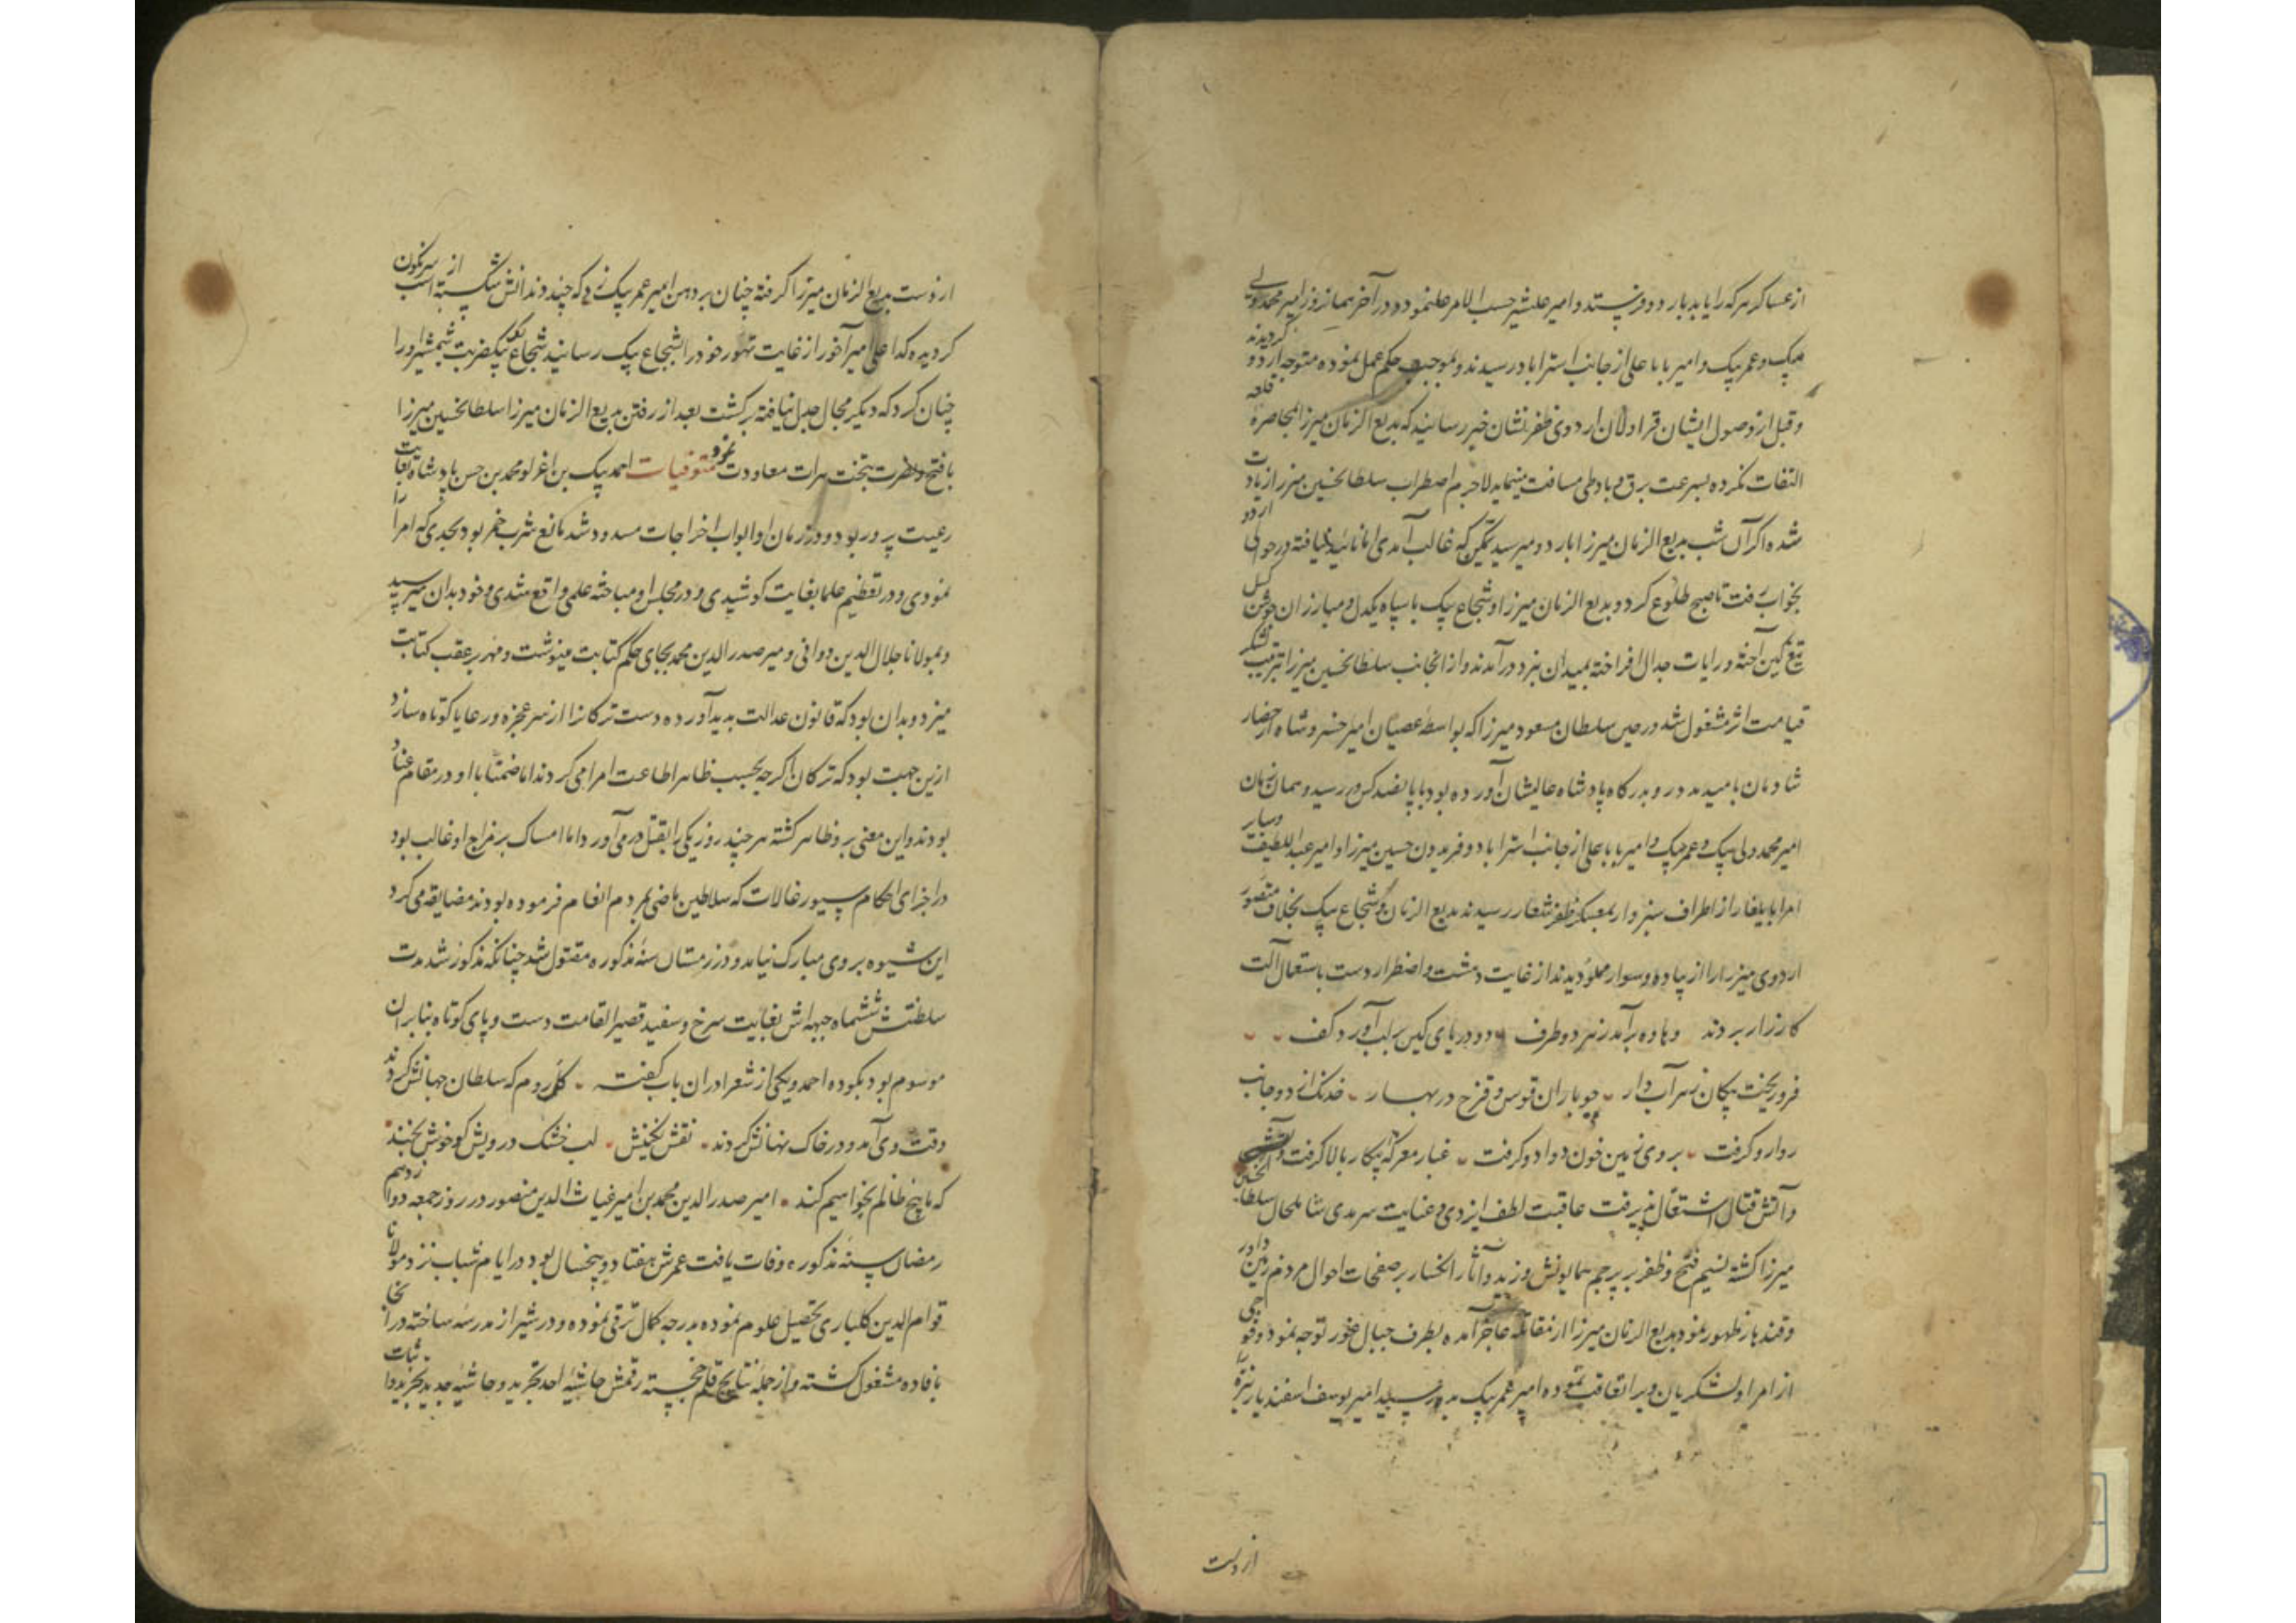 از عساکر هر که را یابد باردو فرستد و امیر علیشیر حسب الامر عمل نمود و در آخر همان روز امیر محمد ولی
بیک و عمر بیک و امیر بابا علی از جانب استراباد رسیدند و بموجب حکم عمل نموده متوجه اردو گردیدند
و قبل از وصول ایشان قراولان اردوی ظفر نشان خبر رسانیدند که بدیع الزمان میرزا بمحاصره قلعه
التفات نکرده بسرعت برق و باد طی مسافت مینماید لاجرم اضطراب سلطان حسین میرزا زیادت
شده اگر آن شب بدیع الزمان میرزا باردو میرسید ممکن که غالب آمدی اما تائید نیافته در حوالی اردو
بخواب رفت تا صبح طلوع کرد و بدیع الزمان میرزا و شجاع بیک با سپاه یکدل و مبارزان جوشن گسل
تیغ کین آخته و رایات جدال افراخته بمیدان نبرد درآمدند و از انجانب سلطان حسین میرزا بترتیب لشکر
قیامت اثر مشغول شد درحین سلطان مسعود میرزا که بواسطه عصیان امیر خسرو شاه از حصار
شادمان بامید مدد رو بدرگاه پادشاه عالیشان آورده بود با پانصد کس رسید و همان زمان
امیر محمد ولی بیک و عمر بیک و امیر بابا علی از جانب استراباد و فریدون حسین میرزا و امیر عبد اللطیف و سایر
امرا بایلغار از اطراف سبزوار بمعسکر ظفر شعار رسیدند بدیع الزمان و شجاع بیک بخلاف متصور
اردوی میرزا را از پیاده و سوار مملو دیدند از غایت دهشت و اضطرار دست باستعمال آلت
کارزار بردند و ماده برآمد ز هر دو طرف دو دریای کین بر لب آورد کف
فرو ریخت پیکان زهر آب دار چو باران قوس و قزح در بهار خدنگ از دو جانب
روارو گرفت بروی زمین خون دوادو گرفت غبار معرکه پیکار بالا گرفت
و آتش قتال اشتعال پذیرفت عاقبت لطف ایزدی و عنایت سرمدی شامل حال سلطان حسین
میرزا گشته نسیم فتح و ظفر بر پرچم همایونش وزید و آثار انکسار بر صفحات احوال مردم زمین داور
و قندهار ظهور نمود بدیع الزمان میرزا از مقابله عاجز آمده بطرف جبال غور توجه نمود و فوجی
از امرا و لشکریان ویرا تعاقب نموده امیر عمر بیک بدو رسید امیر یوسف اسفندیار نیزه را
از دست
از دست بدیع الزمان میرزا گرفته چنان بر دهن امیر عمر بیک زد که چند دندانش شکسته از اسب سرنگون
گردیده کدا علی امیر آخور از غایت تهور خود را بشجاع بیک رسانید شجاع بیک بیک ضربت شمشیر او را
چنان کرد که دیگر مجال جدل نیافته برگشت بعد از رفتن بدیع الزمان میرزا سلطان حسین میرزا
با فتح و نصرت بتخت هرات معاودت نمود متوفیات احمد بیک بن اغرلو محمد بن حسن پادشاه بغایت
رعیت پرور بود و در زمان او ابواب اخراجات مسدود شد مانع شرب خمر بود بحدی که امر
نمودی و در تعظیم علما بغایت کوشیدی و در مجلس او مباحثه علمی واقع شدی و خود بدان میرسید
و بمولانا جلال الدین دوانی و میر صدر الدین محمد بجای حکم کتابت مینوشت و مهر بر عقب کتابت
میزد و بدان بود که قانون عدالت بدید آورده دست ترکانرا از سر عجزه و رعایا کوتاه سازد
ازین جهت بود که ترکان اگرچه بحسب ظاهر اطاعت امرا می کردند اما ضمنا با او در مقام عناد
بودند و این معنی بر و ظاهر گشته هر چند روز یکی را بقتل در می آورد اما امساک بر مزاج او غالب بود
در اجرای احکام سیورغالات که سلاطین ماضی بمردم انعام فرموده بودند مضایقه می کرد
این شیوه بر وی مبارک نیامد و در زمستان سنه مذکوره مقتول شد چنانکه مذکور شد مدت
سلطنتش ششماه جبهه اش بغایت سرخ و سفید قصیر القامت دست و پای کوتاه بنابران
موسوم بود بکوده احمد و یکی از شعرا دران باب گفته گل روم که سلطان جهانش کردند
وقت وی آمد و در خاک نهانش کردند نقش نگینش لب خشک درویش گو خوش بخند
که ما بیخ ظالم بخواهیم کند امیر صدر الدین محمد بن امیر غیاث الدین منصور در روز جمعه دوازدهم
رمضان سنه مذکوره وفات یافت عمرش هفتاد و پنجسال بود در ایام شباب نزد مولانا
قوام الدین کلباری تحصیل علوم نموده بدرجه کمال ترقی نموده و در شیراز مدرسه ساخته در آنجا
بافاده مشغول گشته و از جمله نتایج قلم خجسته رقمش حاشیه احد تجرید و حاشیه جدید تجرید و اثبات